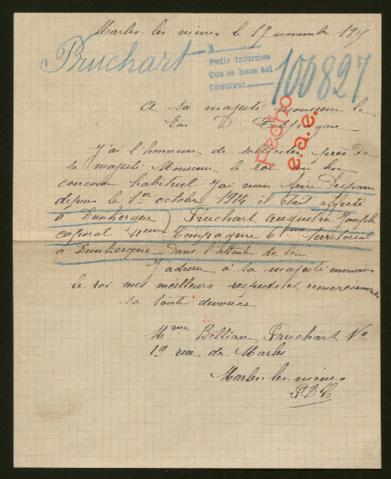 Marles les mines le 19 novembre 191
Pruchart
Pedir Informes
Que se hace así
Devolver
100827
Fecho
e.a.e.
A sa majesté Monsieur le
Roi D Espagne
J'ai l'honneur de solliciter près de
sa majesté Monsieur le roi
concours habituel j'ai mon frère Disparu
depuis le 1er octobre 1914 il était affecté
à Dunkerque Pruchart augustin Joseph
caporal Compagnie territorial
à Dunkerque Dans l'attente de
J'adresse à sa majesté monsieur
le roi mes meilleurs respects et remerciements
sa toute dévouée
Mme Billiau Pruchart No
19 rue de Marles
Marles les mines
P.D.C.